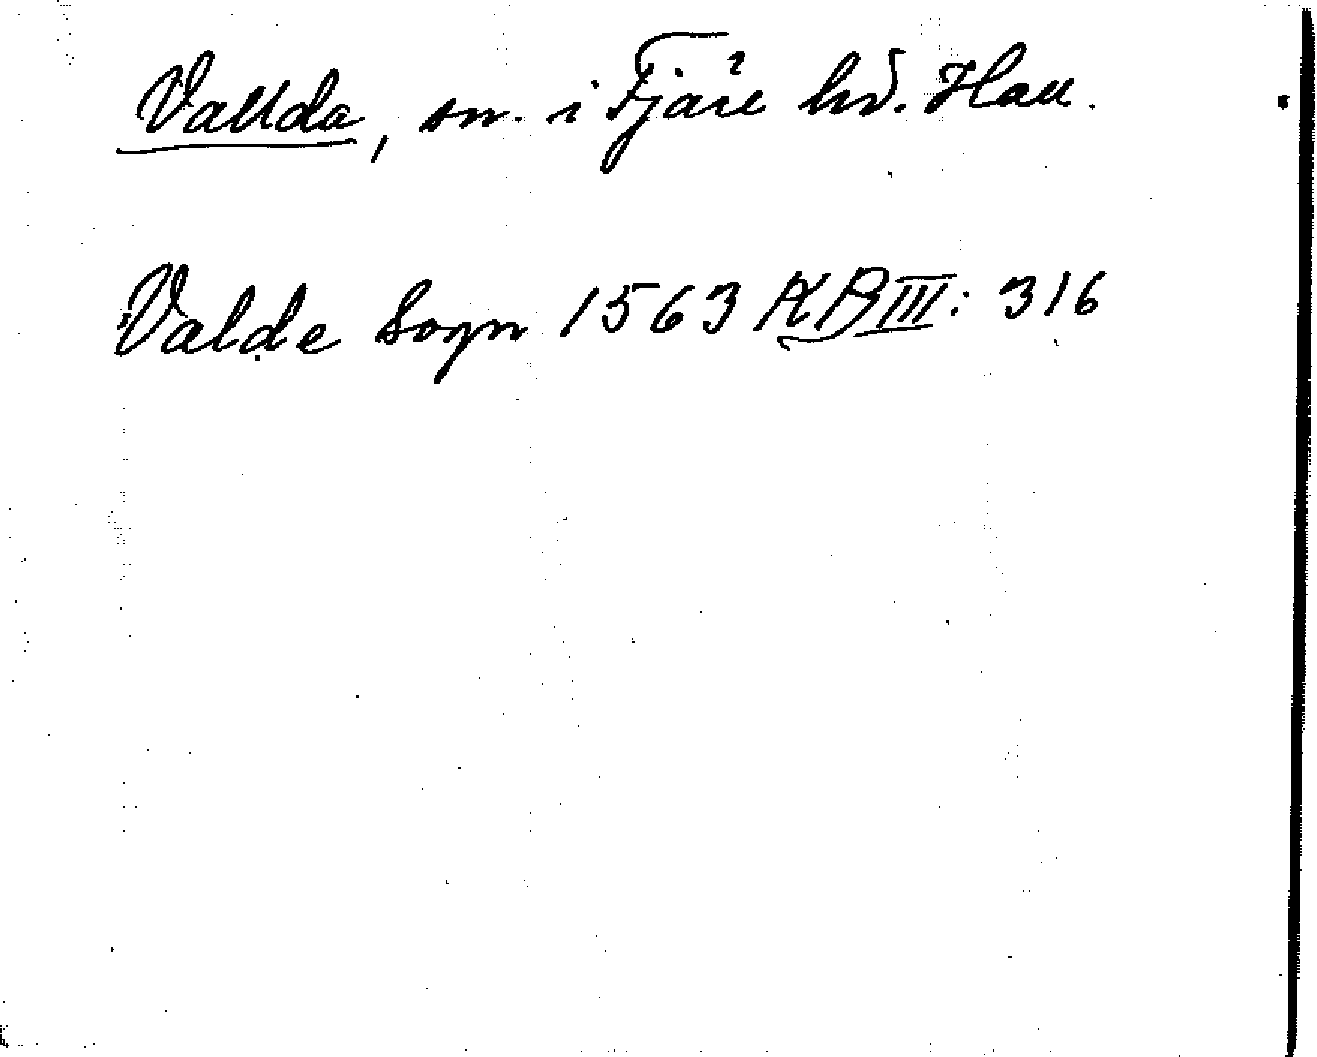 Vallda, sn. i Fjäre hd. Hall.
Valde Sogn 1563 KB III: 316